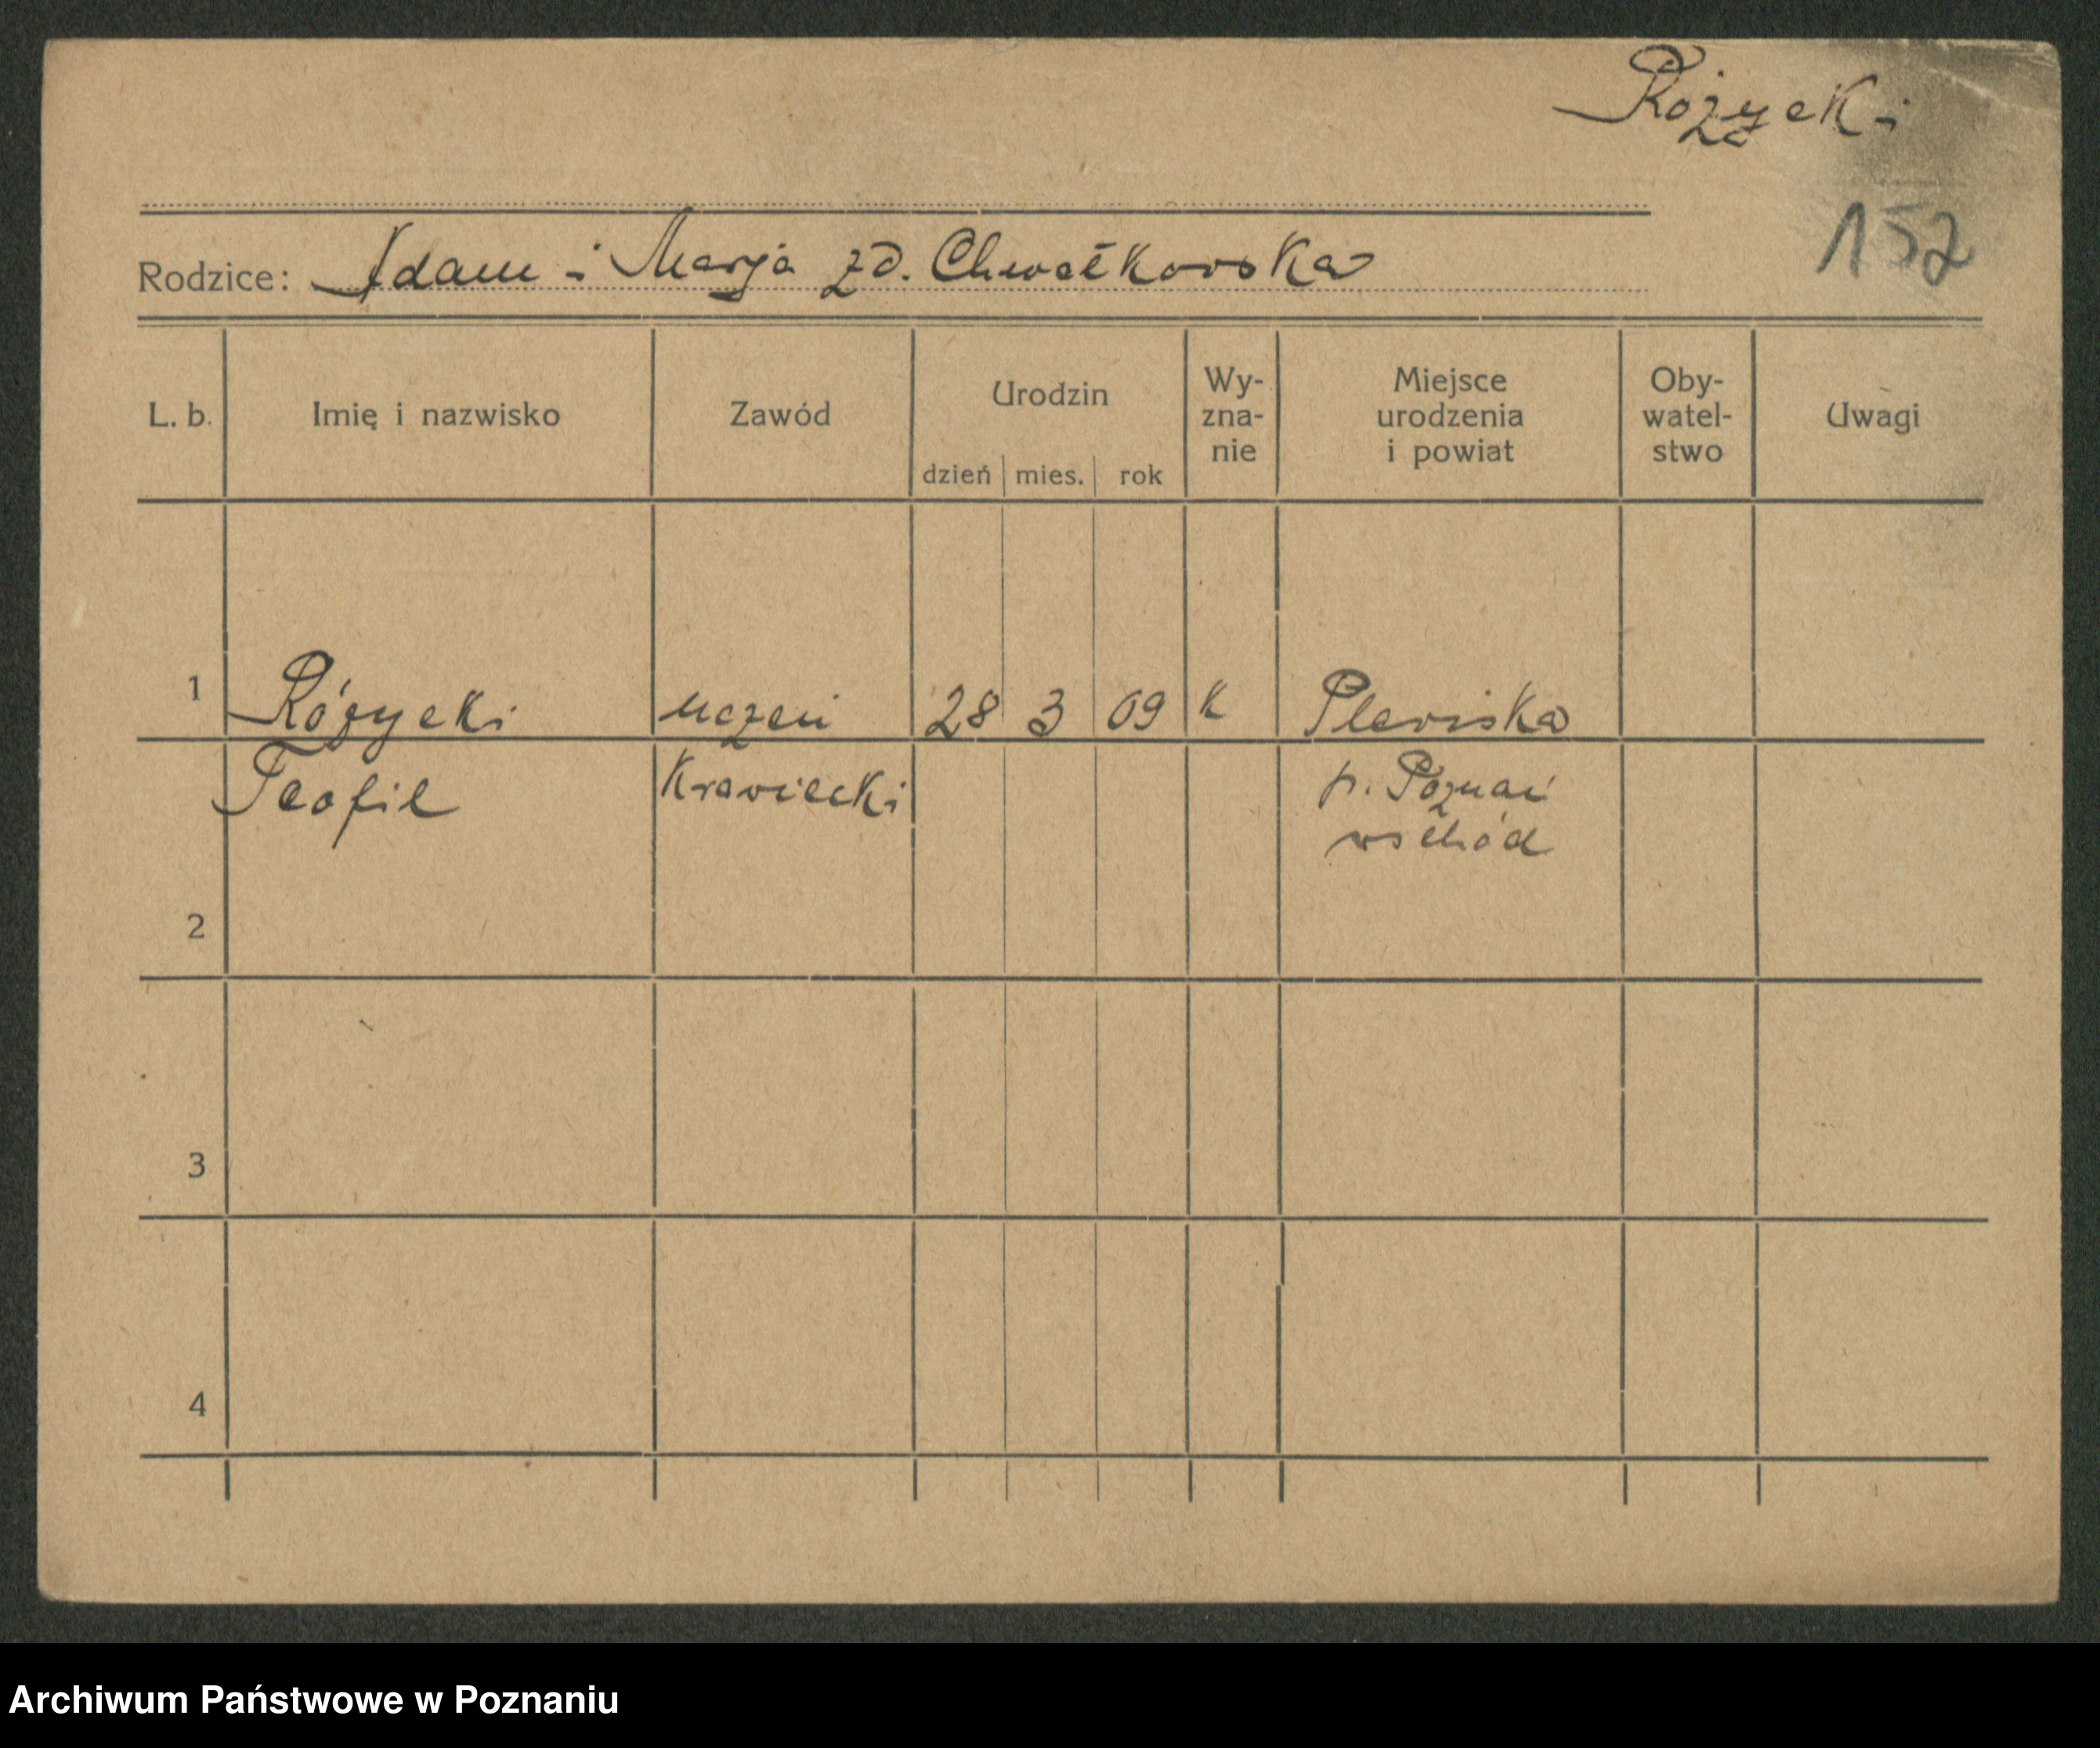 Różycki
152
Rodzice: Adam i Marja zd. Chwałkowska
L. b. Imię i nazwisko Zawód Urodzin dzień mies. rok Wy-zna-nie Miejsce urodzenia i powiat Oby-watel-stwo Uwagi
1 Różycki uczeń 28 3 09 k Plewiska
Teofil Krawiecki p. Poznań
wschód
2
3
4
Archiwum Państwowe w Poznaniu